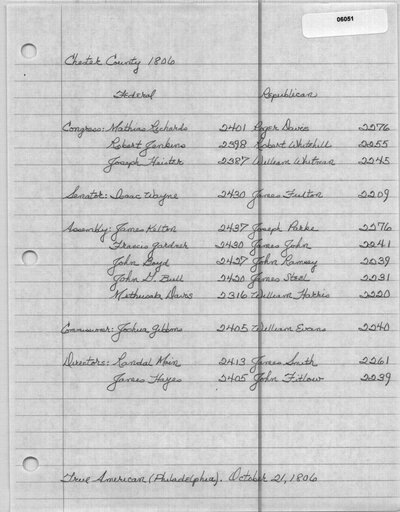 06051
Chester County 1806
Federal Republican
Congress: Mathias Richards 2401 Roger Davis 2276
Robert Jenkins 2398 Robert Whitehill 2255
Joseph Heister 2387 William Whitman 2245
Senator: Isaac Wayne 2430 James Fulton 2209
Assembly: James Kelton 2437 Joseph Parke 2276
Francis Gardner 2430 James John 2241
John Boyd 2427 John Ramsey 2239
John G. Bull 2420 James Steel 2231
Methuselah Davis 2316 William Harris 2220
Commissioner: Joshua Gibbons 2405 William Evans 2240
Directors: Randal Moin 2413 James Smith 2261
James Hayes 2405 John Fitlow 2239
True American (Philadelphia). October 21, 1806